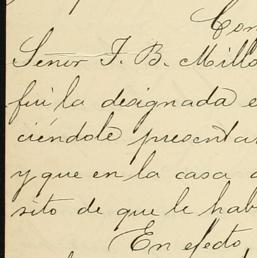 Con
Señor J. B. Millo
fui la designada e
ciéndole presenta
y que en la casa
sito de que le hab
En efecto,